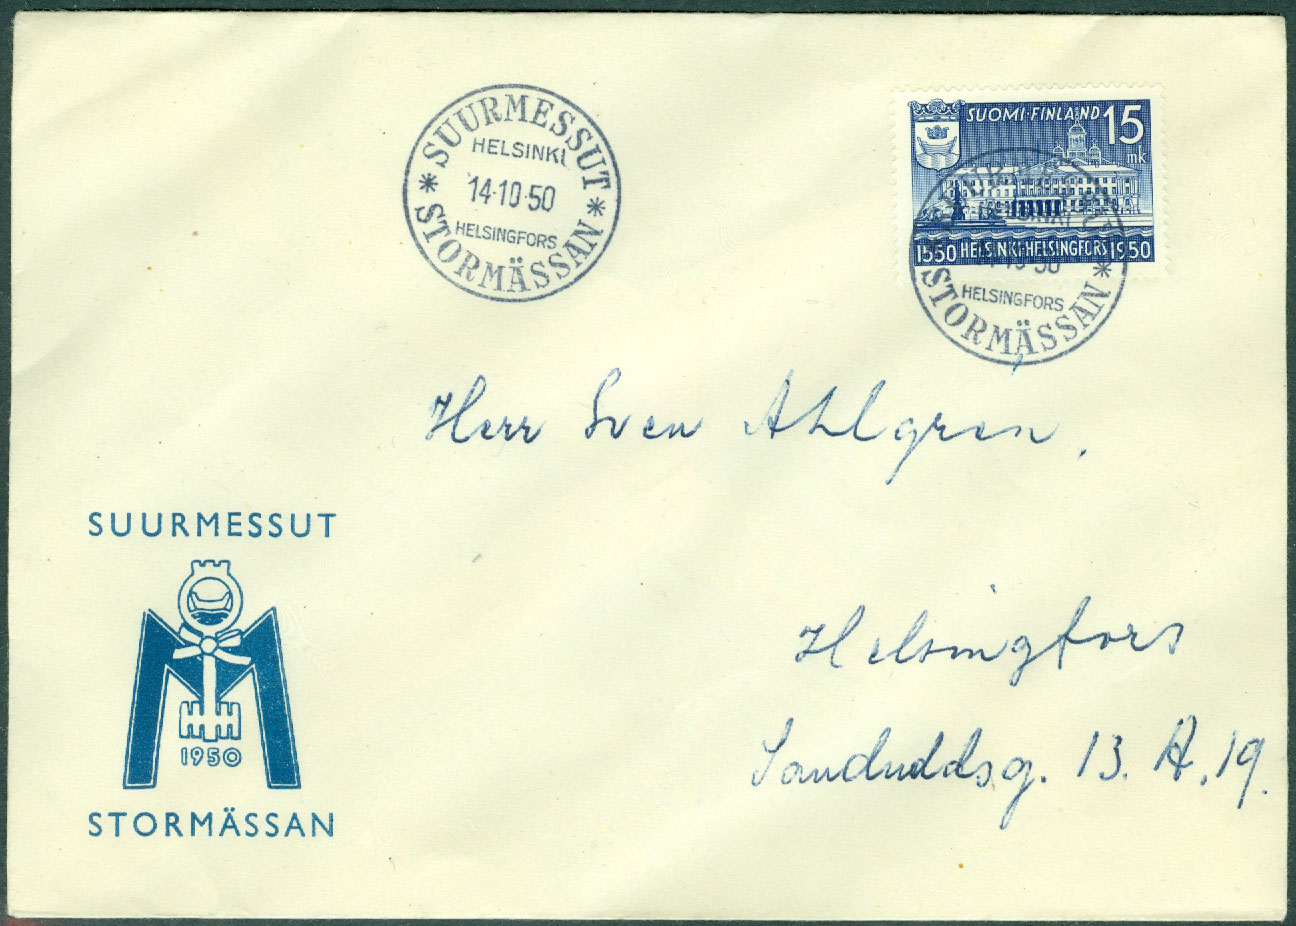 SUURMESSUT
HELSINKI
14·10·50
HELSINGFORS
STORMÄSSAN
SUOMI·FINLAND 15
mk
1550 HELSINKI·HELSINGFORS 1950
HELSINGFORS
STORMÄSSAN
Herr Sven Ahlgren,
Helsingfors
Sanduddsg. 13. A, 19.
SUURMESSUT
1950
STORMÄSSAN